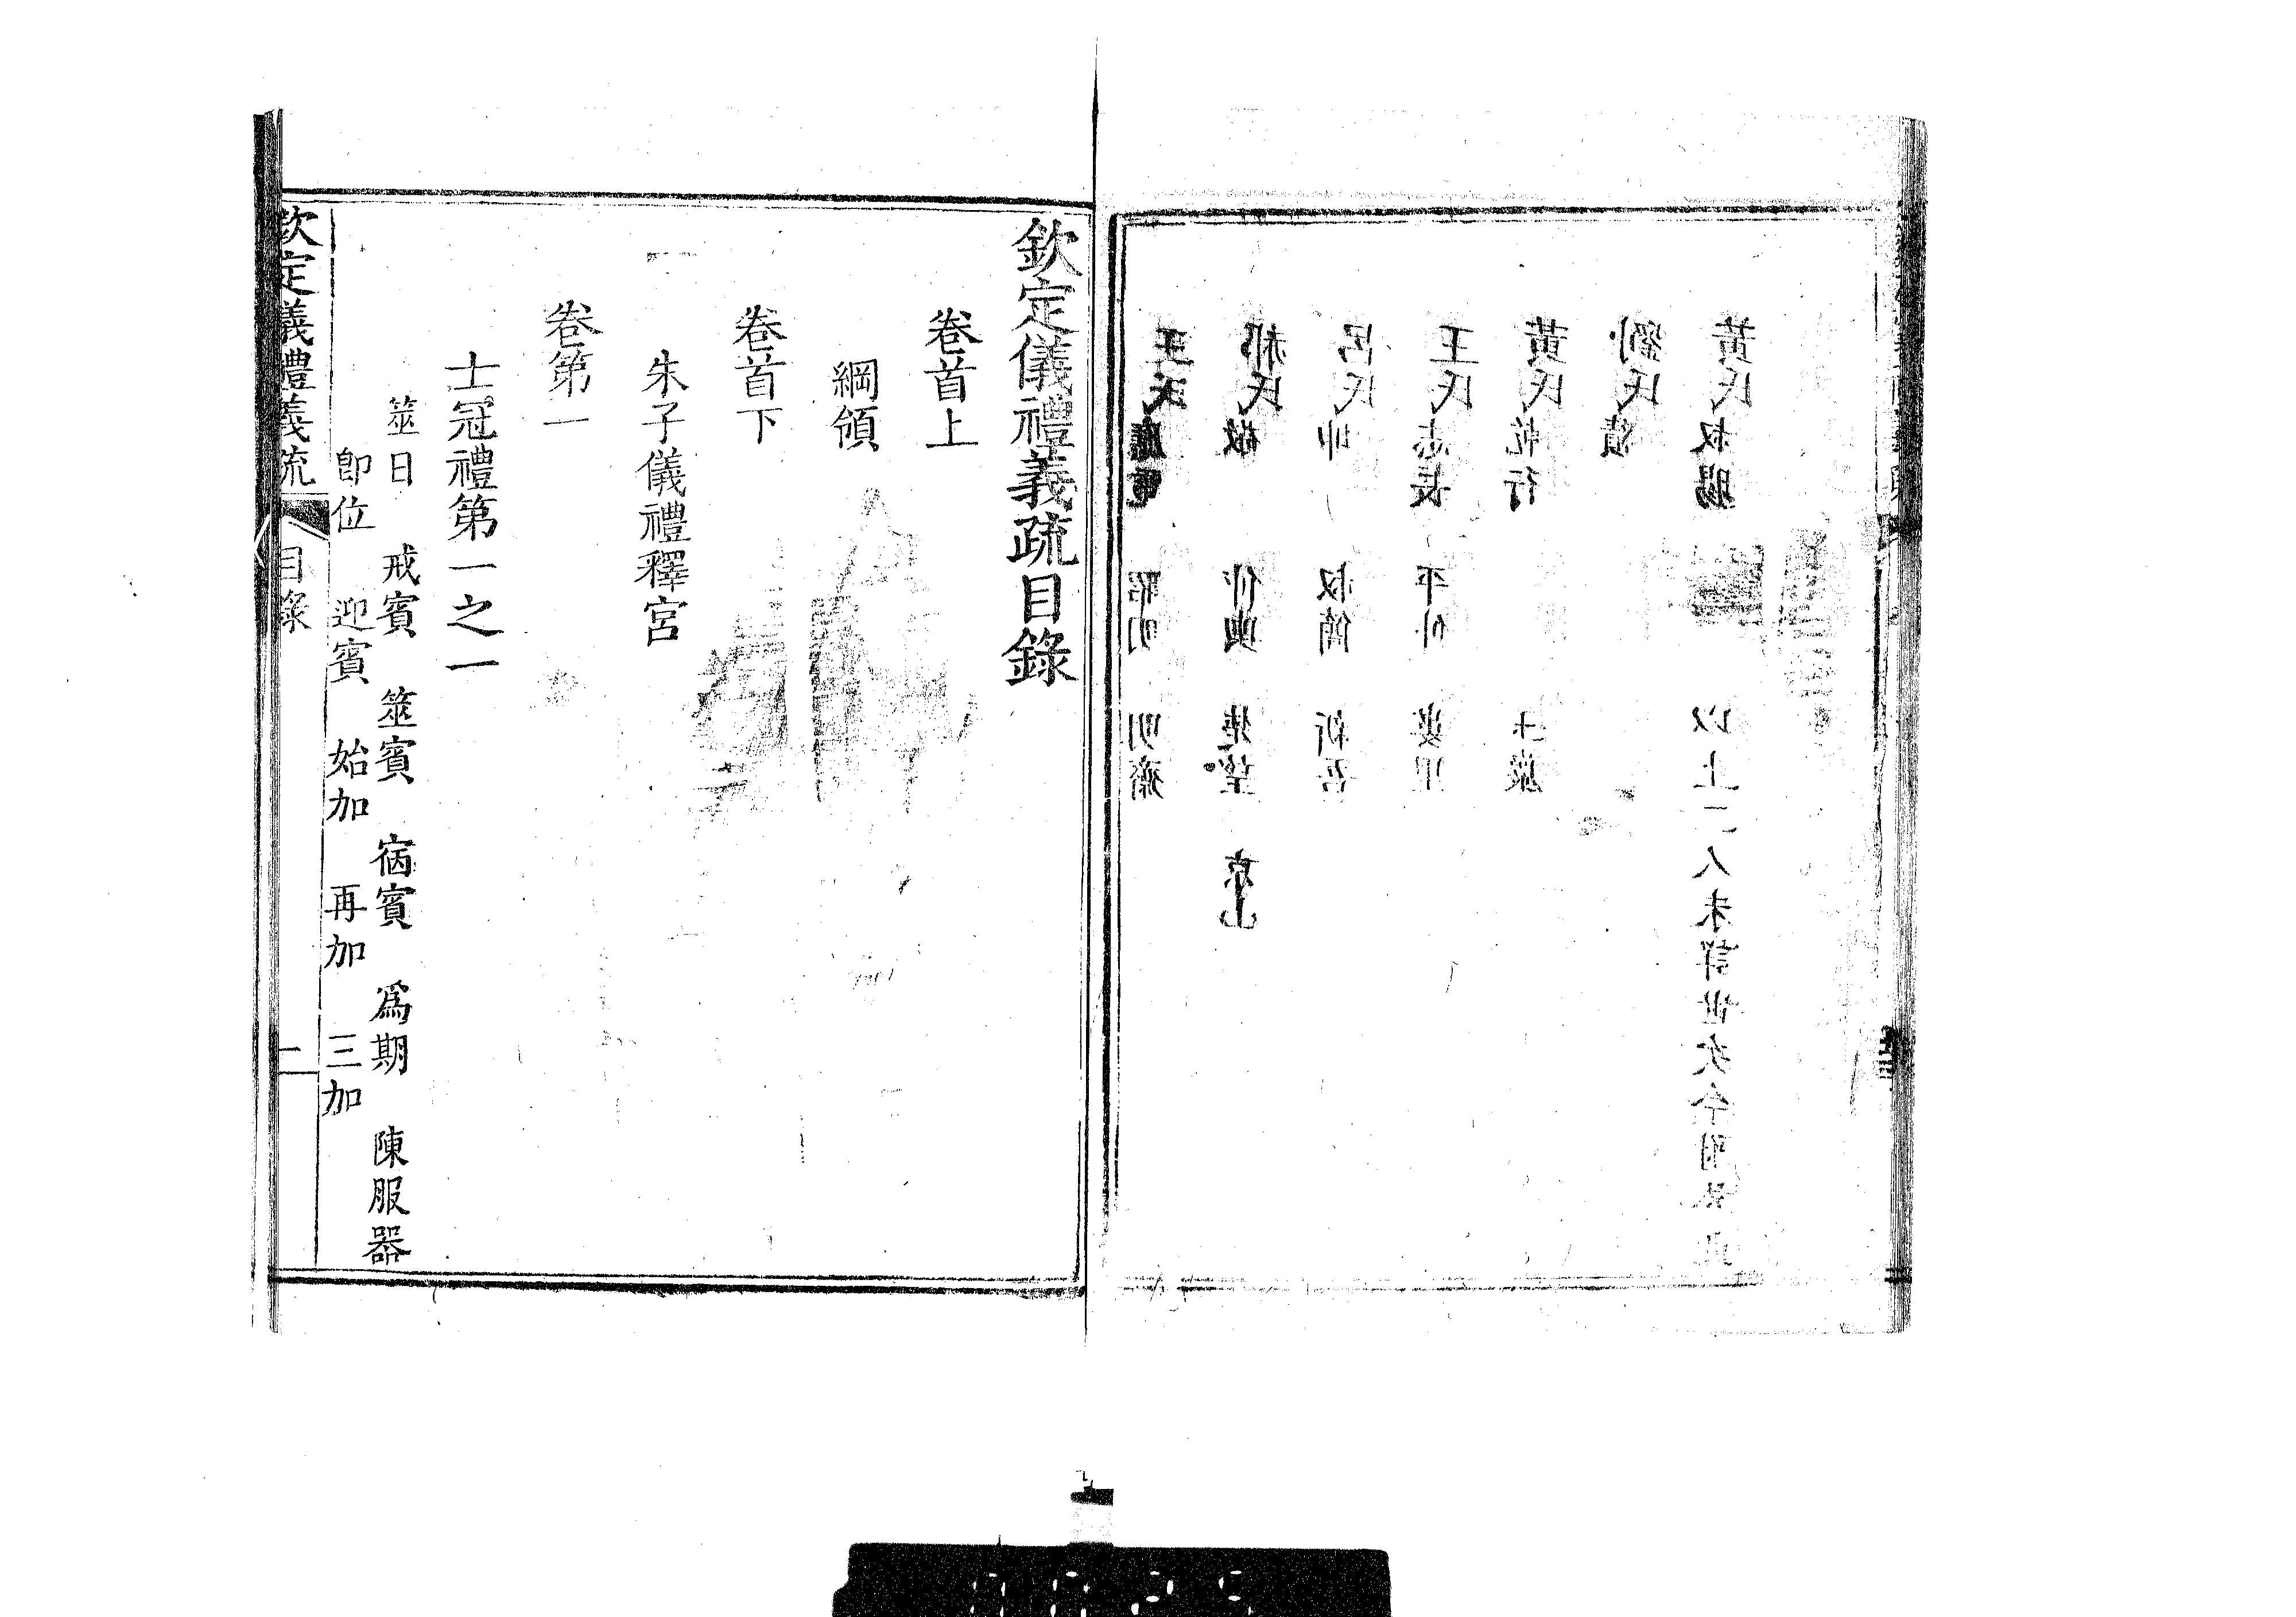 黃氏叔暘 以上二人未詳世次今附於此
劉氏績
黃氏乾行
王氏志長 平仲
呂氏坤 叔簡 新吾
郝氏敬 仲輿 楚望 京山
王氏應電 昭明 明齋
欽定儀禮義疏目錄
卷首上
綱領
卷首下
朱子儀禮釋宮
卷第一
士冠禮第一之一
筮日 戒賓 筮賓 宿賓 為期 陳服器
卽位 迎賓 始加 再加 三加
欽定儀禮義疏 目錄 二